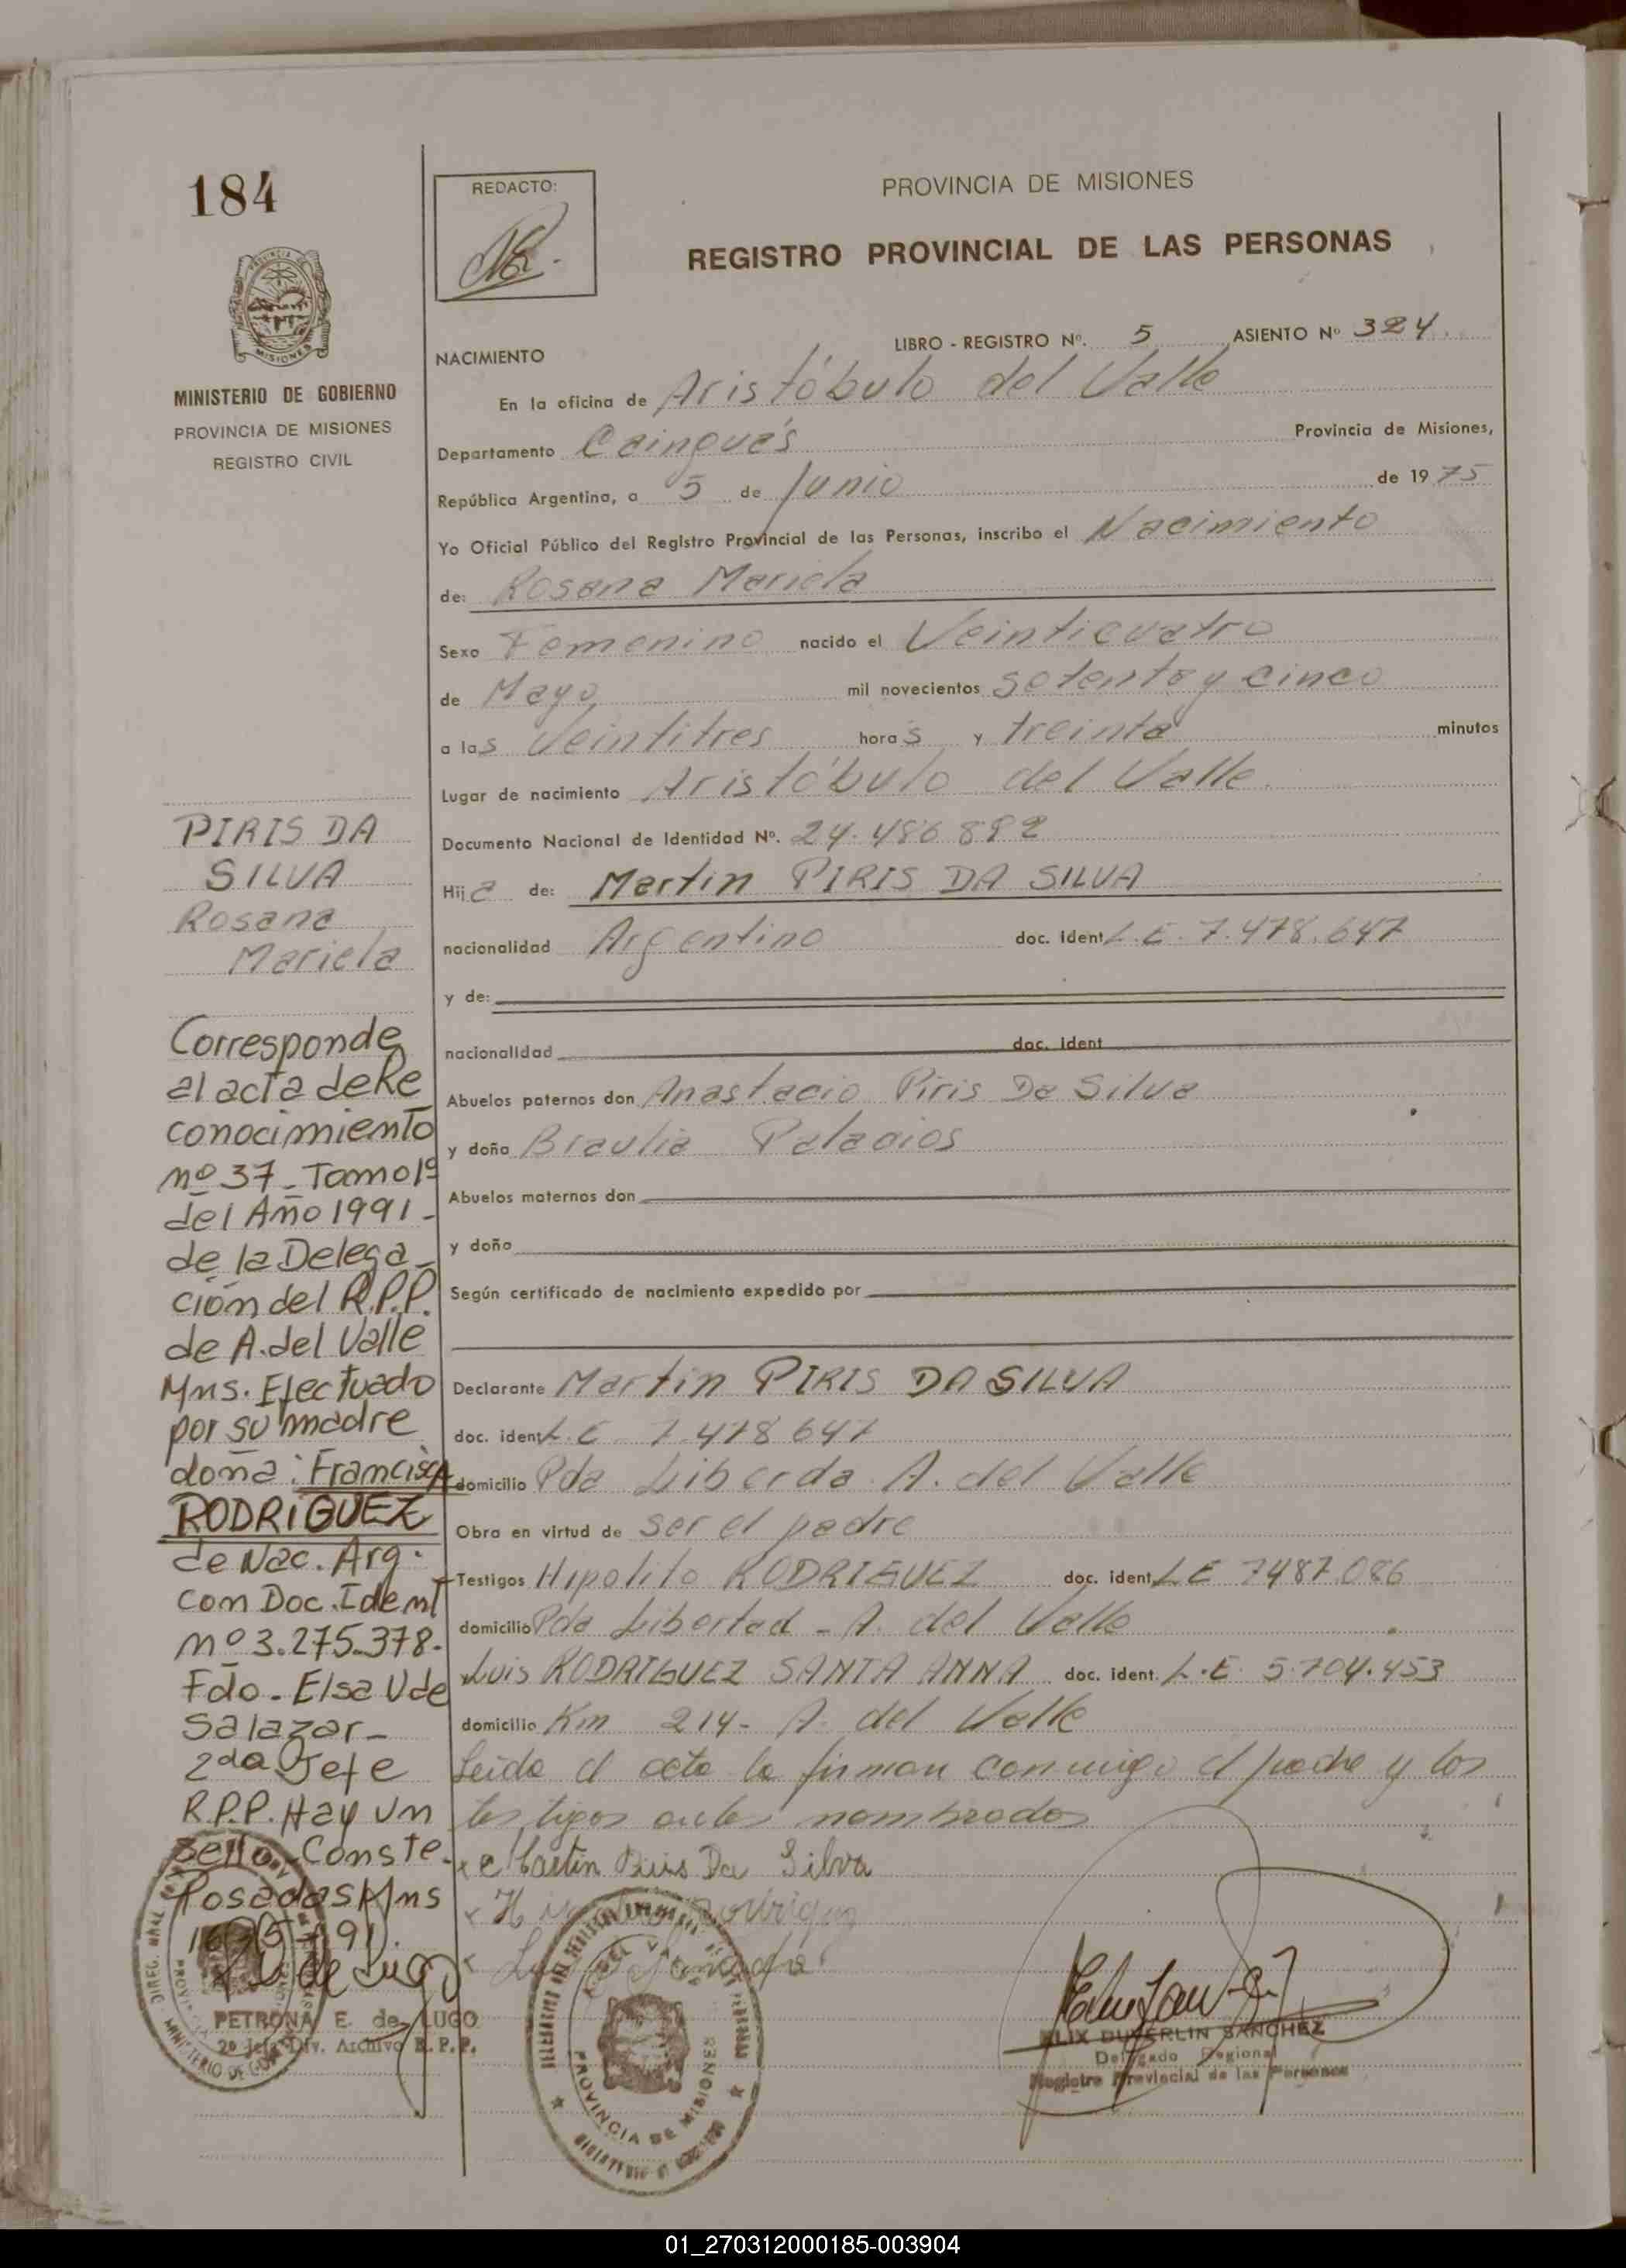 184
REDACTO:
PROVINCIA DE MISIONES
REGISTRO PROVINCIAL DE LAS PERSONAS
MISIONES
MINISTERIO DE GOBIERNO
PROVINCIA DE MISIONES
REGISTRO CIVIL
LIBRO - REGISTRO Nº. 5 ASIENTO Nº 324
NACIMIENTO
En la oficina de Aristóbulo del Valle
Departamento Cainguás Provincia de Misiones,
República Argentina, a 5 de Junio de 1975
Yo Oficial Público del Registro Provincial de las Personas, inscribo el Nacimiento
de: Rosana Mariela
Sexo Femenino nacido el Veinticuatro
de Mayo mil novecientos setenta y cinco
a las veintitres horas y treinta minutos
Lugar de nacimiento Aristóbulo del Valle.
Documento Nacional de Identidad Nº. 24.486.892
Hija de: Martin PIRIS DA SILVA
nacionalidad Argentino doc. ident L.E. 7.478.647
y de:
nacionalidad doc. ident
Abuelos paternos don Anastacio Piris Da Silva
y doña Braulia Palacios
Abuelos maternos don
y doña
Según certificado de nacimiento expedido por
Declarante Martin PIRIS DA SILVA
doc. ident L.E 7.478.647
domicilio Pda Liberda A. del Valle
Obra en virtud de ser el padre
Testigos Hipolito RODRIGUEZ doc. ident LE 7487.086
domicilio Pda Libertad - A. del Valle
y Luis RODRIGUEZ SANTA ANNA doc. ident. L.E. 5.704.453
domicilio Km 214- A. del Valle
Leida el acta la firman conmigo el padre y los
testigos antes nombrados
Martin Piris Da Silva
PIRIS DA
SILVA
Rosana
Mariela
Corresponde
al acta de Re
conocimiento
nº 37 - Tomo 1º
del Año 1991 -
de la Delega
ción del R.P.P.
de A. del Valle
Mns. Efectuado
por su madre
doña: Francisca
RODRIGUEZ
de Nac. Arg.
con Doc. Ident
nº 3.275.378.
Fdo. Elsa V de
Salazar -
2da Jefe
R.P.P. Hay un
Sello. Conste.
Posadas Mns
PETRONA E. de LUGO
2º Jefe Div. Archivo R.P.P.
PROVINCIA DE MISIONES
ELIX DUVERLIN SANCHEZ
Delegado Regional
Registro Provincial de las Personas
01_270312000185-003904